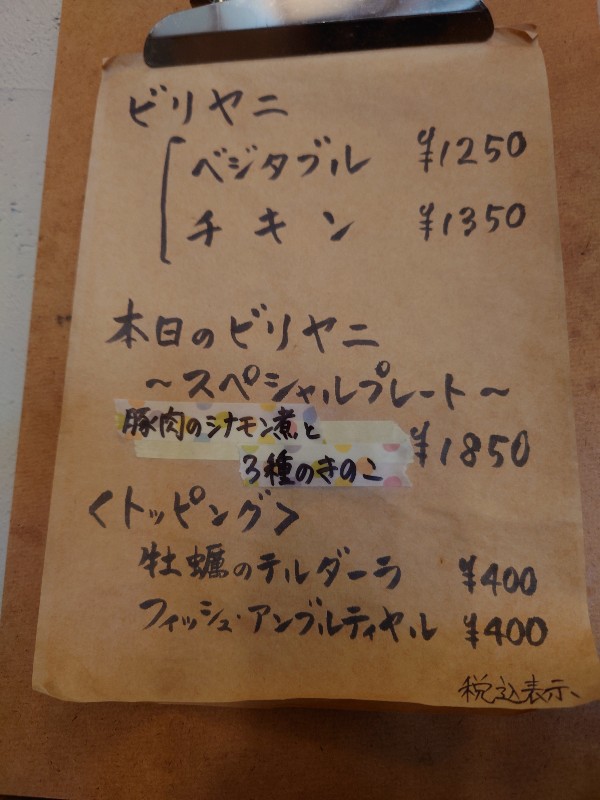 ビリヤニ
ベジタブル ¥1250
チキン ¥1350
本日のビリヤニ
~スペシャルプレート~
豚肉のシナモン煮と
3種のきのこ ¥1850
<トッピング>
牡蠣のテルダーラ ¥400
フィッシュ・アンブルティヤル ¥400
税込表示、